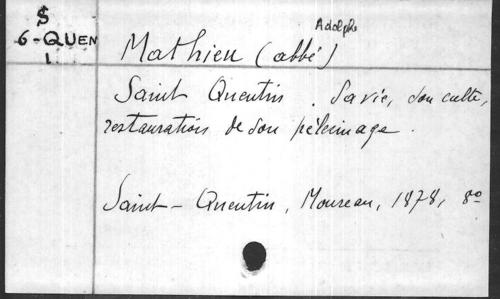 $
6-QUEN
1.
Adolphe
Mathieu (abbé)
Saint Quentin. Sa vie, son culte,
restauration de son pèlerinage.
Saint-Quentin, Moureau, 1878, 8º